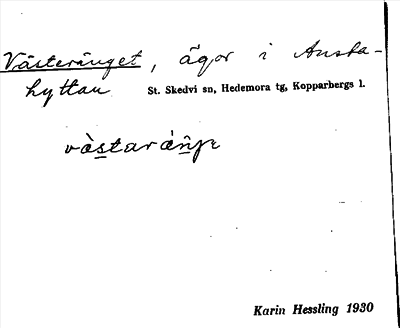 Västeränget, ägor i Ansta-
hyttan St. Skedvi sn, Hedemora tg, Kopparbergs l.
Karin Hessling 1930